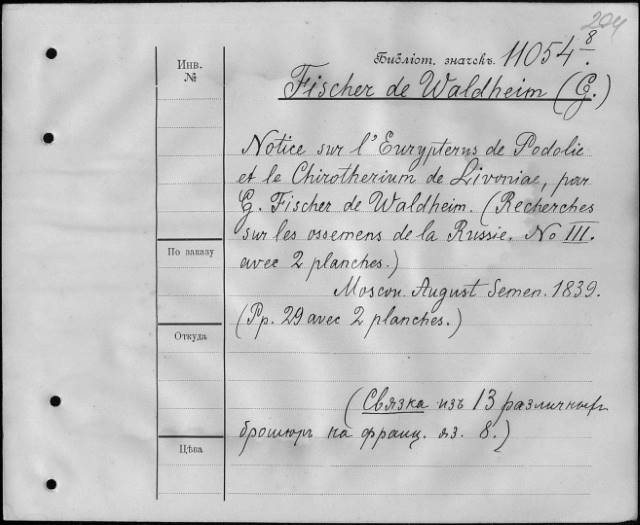 204
Инв.
№
Библіот. значекъ. 11054 8.
Fischer de Waldheim (G.)
Notice sur l'Eurypterus de Podolie
et le Chirotherium de Livoniae, par
G. Fischer de Waldheim. (Recherches
sur les ossemens de la Russie. No III.
avec 2 planches.)
По заказу
Moscou. August Semen. 1839.
(Pp. 29 avec 2 planches.)
Откуда
(Связка изъ 13 различныхъ
брошюръ на франц. яз. 8.)
Цѣна